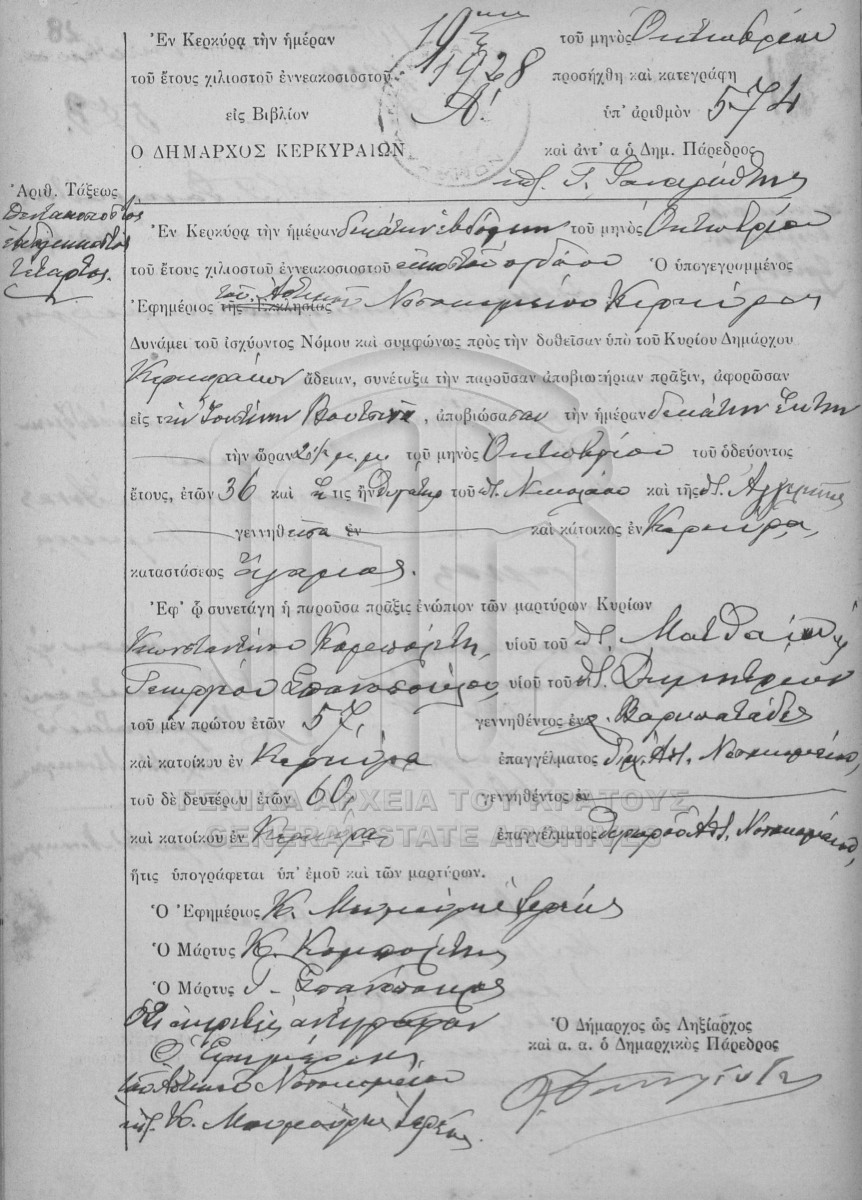 Ἐν Κερκύρᾳ τὴν ἡμέραν 19ην τοῦ μηνὸς Ὀκτωβρίου
τοῦ ἔτους χιλιοστοῦ ἐννεακοσιοστοῦ 1928 προσήχθη καὶ κατεγράφη
εἰς Βιβλίον Α! ὑπ' ἀριθμὸν 574
Ο ΔΗΜΑΡΧΟΣ ΚΕΡΚΥΡΑΙΩΝ καὶ ἀντ' α ὁ Δημ. Πάρεδρος
Ἀριθ. Τάξεως
Πεντακοσιοστὸς
ἑβδομηκοστὸς
τέταρτος.
Ἐν Κερκύρᾳ τὴν ἡμέραν δεκάτην ἑβδόμην τοῦ μηνὸς Ὀκτωβρίου
τοῦ ἔτους χιλιοστοῦ ἐννεακοσιοστοῦ εἰκοστοῦ ὀγδόου Ὁ ὑπογεγρωμμένος
Ἐφημέριος τῆς Ἐκκλησίας τοῦ Ἀστικοῦ Νοσοκομείου Κερκύρας
Δυνάμει τοῦ ἰσχύοντος Νόμου καὶ συμφώνως πρὸς τὴν δοθεῖσαν ὑπὸ τοῦ Κυρίου Δημάρχου
Κερκυραίων ἄδειαν, συνέταξα τὴν παροῦσαν ἀποβιωτήριαν πρᾶξιν, ἀφορῶσαν
εἰς τὴν , ἀποβιώσασαν τὴν ἡμέραν δεκάτην ἕκτην
τὴν ὥραν 2 ½ μ.μ. τοῦ μηνὸς Ὀκτωβρίου τοῦ ὁδεύοντος
ἔτους, ἐτῶν 36 καὶ ἥτις ἦν θυγάτηρ τοῦ Νικολάου καὶ τῆς Ἀγγελικῆς
γεννηθεῖσα ἐν καὶ κάτοικος ἐν Κερκύρᾳ,
καταστάσεως ἄγαμος.
Ἐφ' ᾧ συνετάγη ἡ παροῦσα πρᾶξις ἐνώπιον τῶν μαρτύρων Κυρίων
Κωνσταντίνου Κομπολίτη, υἱοῦ τοῦ Ματθαίου
Γεωργίου Σπανοπούλου, υἱοῦ τοῦ Δημητρίου
τοῦ μὲν πρώτου ἐτῶν 57, γεννηθέντος ἐν Βαρυπατάδες
καὶ κατοίκου ἐν Κερκύρᾳ ἐπαγγέλματος Ἀστ. Νοσοκομείου,
τοῦ δὲ δευτέρου ἐτῶν 60 γεννηθέντος ἐν
καὶ κατοίκου ἐν Κερκύρᾳ, ἐπαγγέλματος θυρωροῦ Ἀστ. Νοσοκομείου,
ἥτις ὑπογράφεται ὑπ' ἐμοῦ καὶ τῶν μαρτύρων.
Ὁ Ἐφημέριος Κ. ἱερεύς
Ὁ Μάρτυς Κ. Κομπολίτης
Ὁ Μάρτυς Γ. Σπανόπουλος
Ὅτι ἀκριβὲς ἀντίγραφον
Ὁ Ἐφημέριος
τοῦ Ἀστικοῦ Νοσοκομείου
Κ. ἱερεύς.
Ὁ Δήμαρχος ὡς Ληξίαρχος
καὶ α. α. ὁ Δημαρχικὸς Πάρεδρος
ΓΕΝΙΚΑ ΑΡΧΕΙΑ ΤΟΥ ΚΡΑΤΟΥΣ
GENERAL STATE ARCHIVES